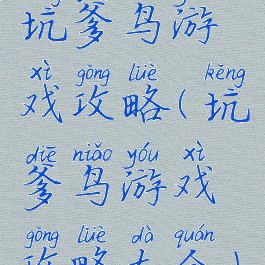 坑爹鸟游
xì gōng lüè kēng
戏攻略(坑
diē niǎo yóu xì
爹鸟游戏
gōng lüè dà quán
攻略大全)